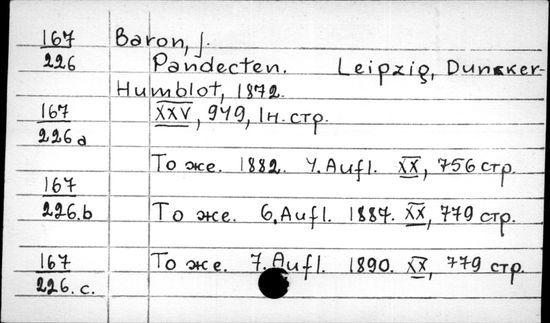 167
226
Baron, J.
Pandecten. Leipzig, Duncker-
Humblot, 1872.
167
226a
XXV, 949, 1н. стр.
То же. 1882. 4. Aufl. XX, 756 стр.
167
226.b
То же. 6. Aufl. 1887. XX, 779 стр.
167
226.c.
То же. 7. Aufl. 1890. XX, 779 стр.